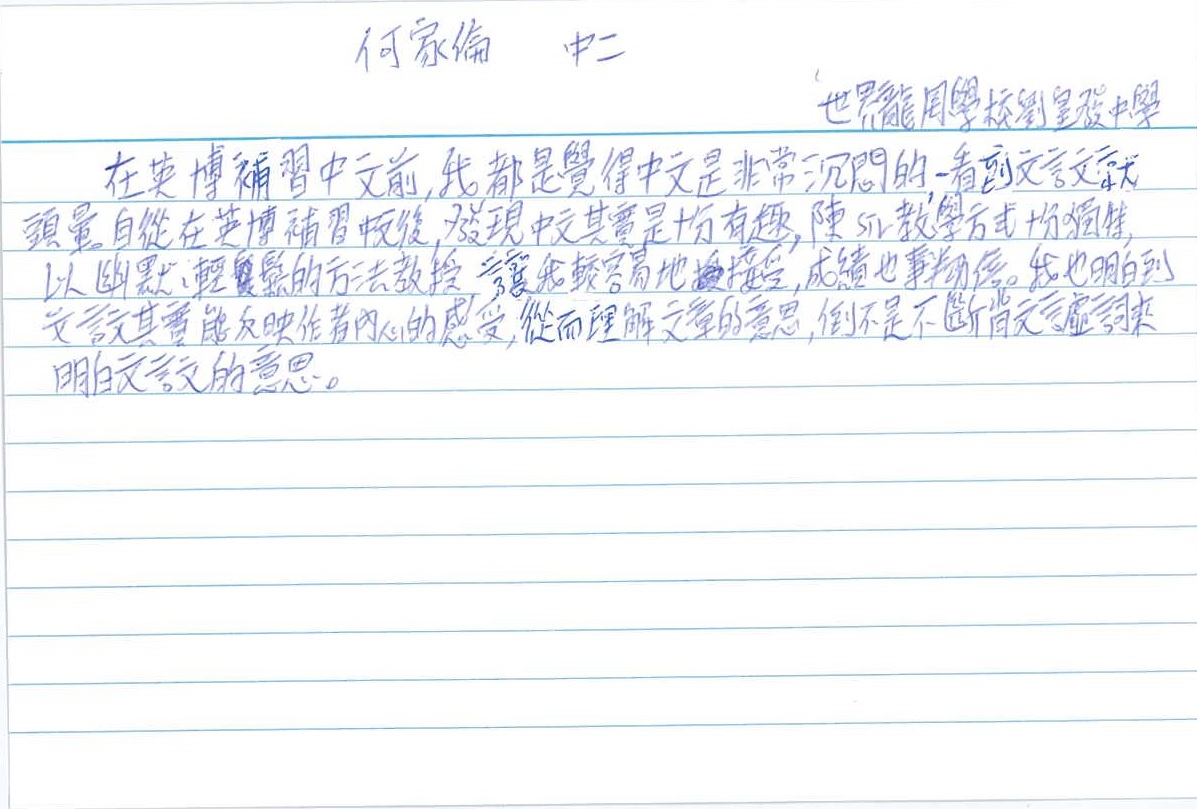 何家倫 中二
世界龍岡學校劉皇發中學
在英博補習中文前,我都是覺得中文是非常沉悶的,一看到文言文就
頭暈。自從在英博補習中文後,發現中文其實是十分有趣,陳sir教學方式十份獨特,
以幽默、輕鬆的方法教授 讓我較容易地接受,成績也事半功倍。我也明白到
文言文其實能反映作者內心的感受,從而理解文章的意思,倒不是不斷背文言虛詞來
明白文言文的意思。